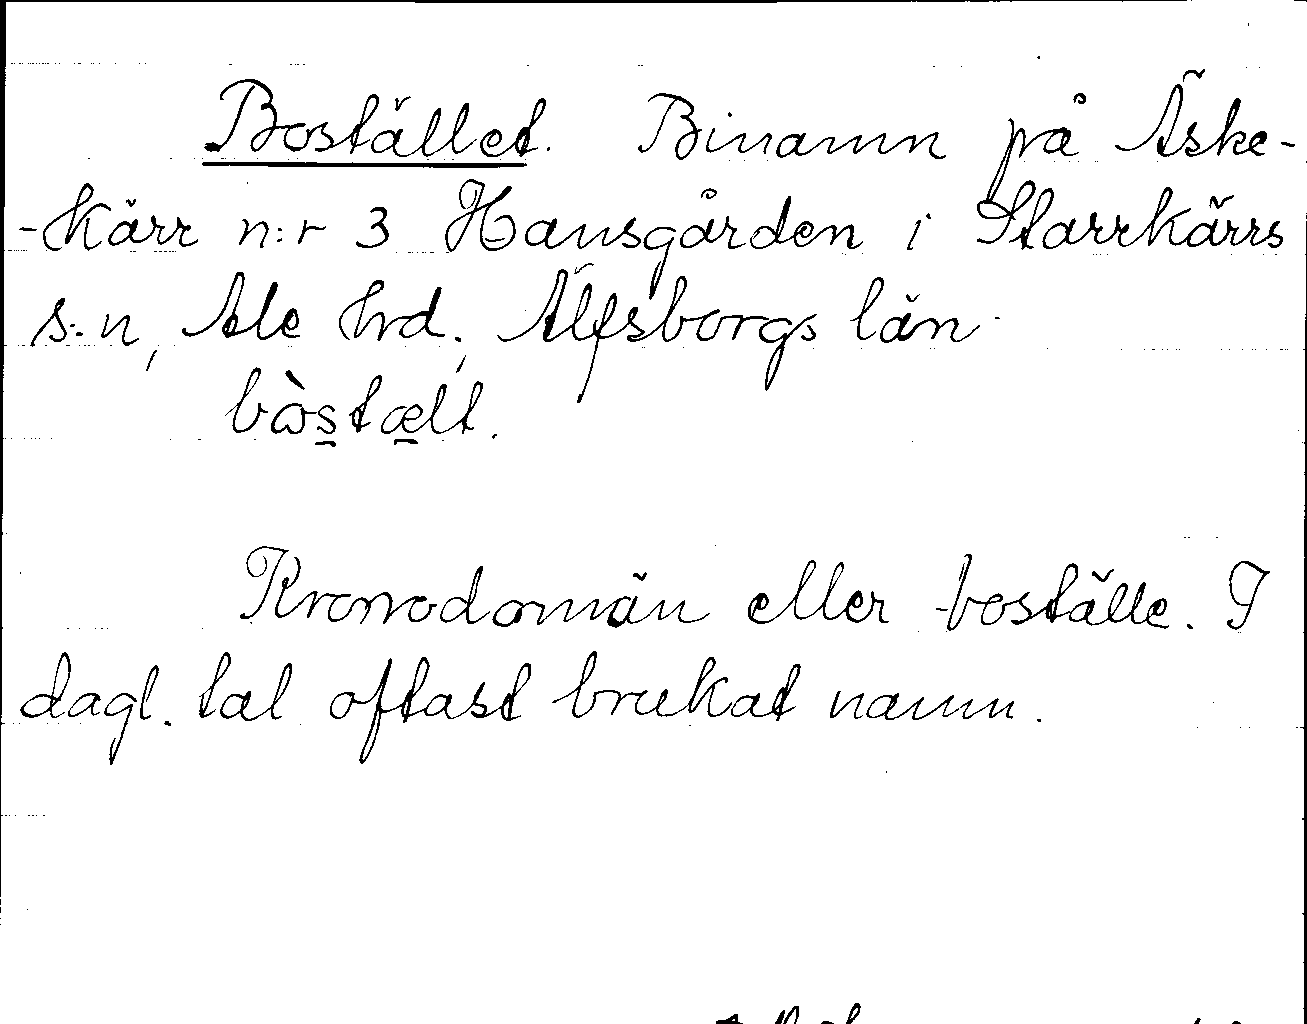 Bostället. Binamn på Äske-
-kärr n:r 3 Hansgården i Starrkärrs
s:n, Ale hrd, Älfsborgs län.
bòstælt.
Kronodomän eller boställe. I
dagl. tal oftast brukat namn.